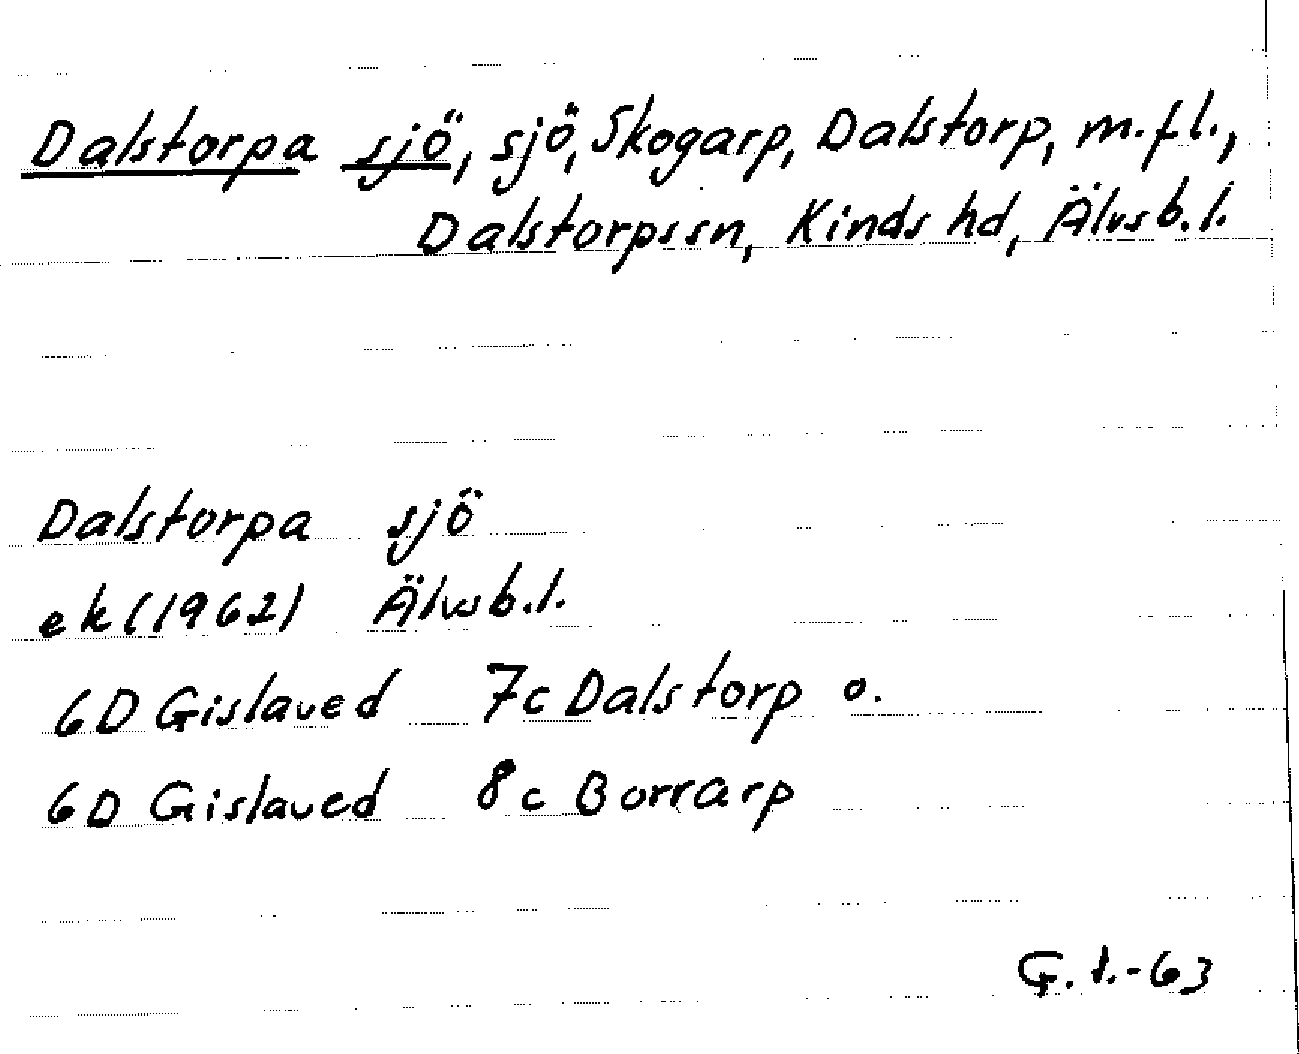 Dalstorpa sjö, sjö, Skogarp, Dalstorp, m.fl.,
Dalstorpssn, Kinds hd, Älvsb.l.
Dalstorpa sjö
ek (1962) Älvsb.l.
6D Gislaved 7c Dalstorp o.
6D Gislaved 8c Borrarp
G.l.-63